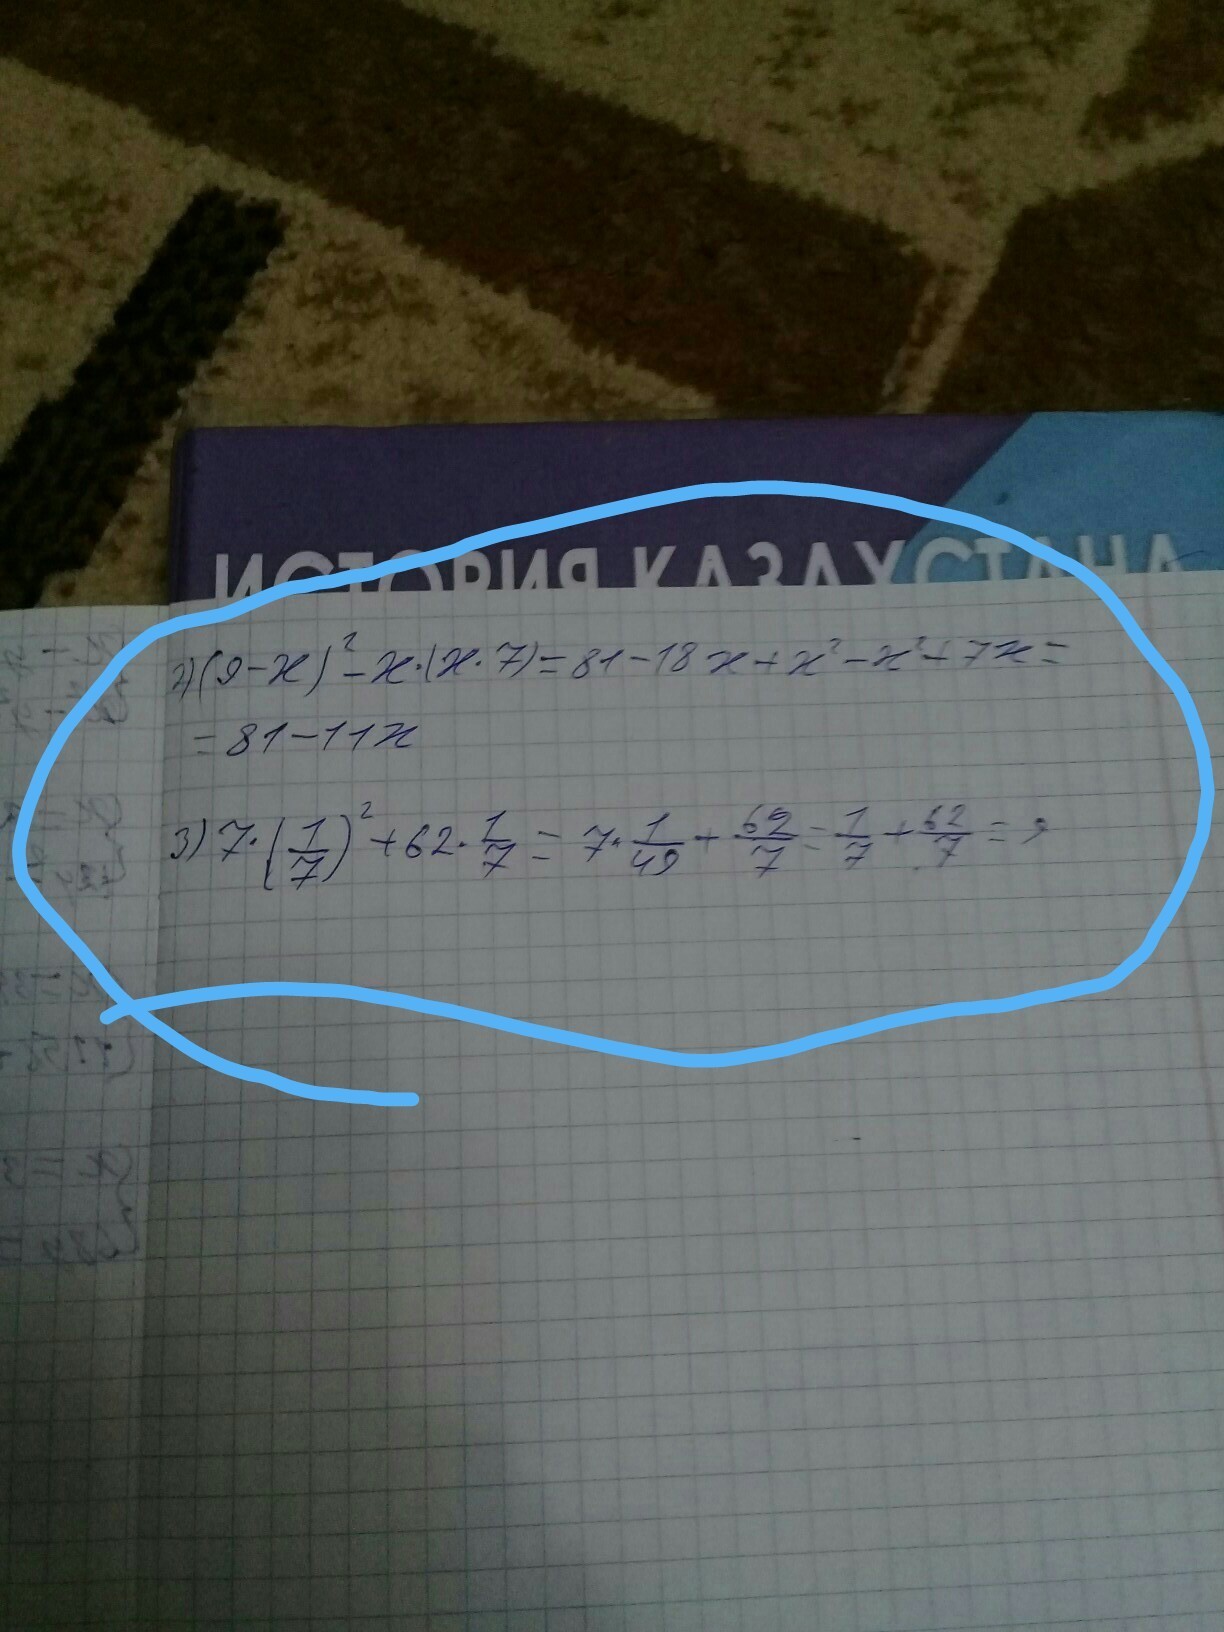 ИСТОРИЯ КАЗАХСТАНА
2) (9-x)² - x·(x·7) = 81-18x+x²-x²+7x =
= 81-11x
3) 7·(1/7)² + 62·1/7 = 7·1/49 + 62/7 = 1/7 + 62/7 = 9